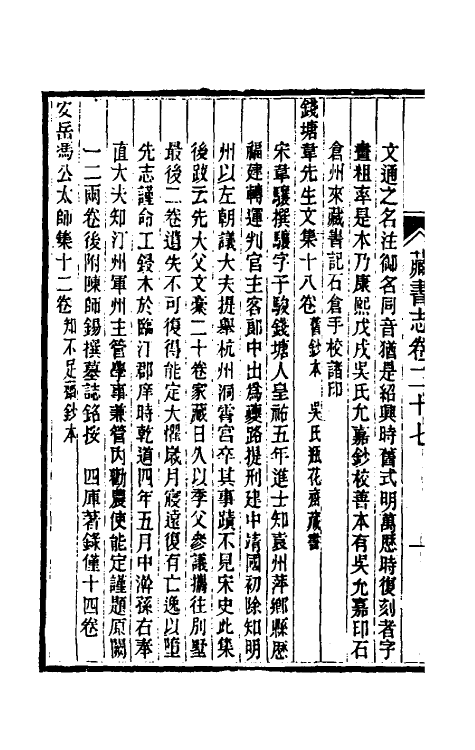 藏書志卷二十七
一
文通之名注御名同音猶是紹興時舊式明萬歷時復刻者字
畫粗率是本乃康熙戊戌吳氏允嘉鈔校善本有吳允嘉印石
倉州來藏書記石倉手校諸印
錢塘韋先生文集十八卷 舊鈔本 吳氏瓶花齋藏書
宋韋驤撰驤字子駿錢塘人皇祐五年進士知袁州萍鄉縣歷
福建轉運判官主客郎中出爲夔路提刑建中靖國初除知明
州以左朝議大夫提舉杭州洞霄宮卒其事蹟不見宋史此集
後跋云先大父文稾二十卷家藏日久以季父參議攜往別墅
最後二卷遺失不可復得能定大懼歲月寖遠復有亡逸以墮
先志謹命工鋟木於臨汀郡庠時乾道四年五月中澣孫右奉
直大夫知汀州軍州主管學事兼管內勸農使能定謹題原闕
一二兩卷後附陳師錫撰墓誌銘按 四庫著錄僅十四卷
安岳馮公太師集十二卷 知不足齋鈔本